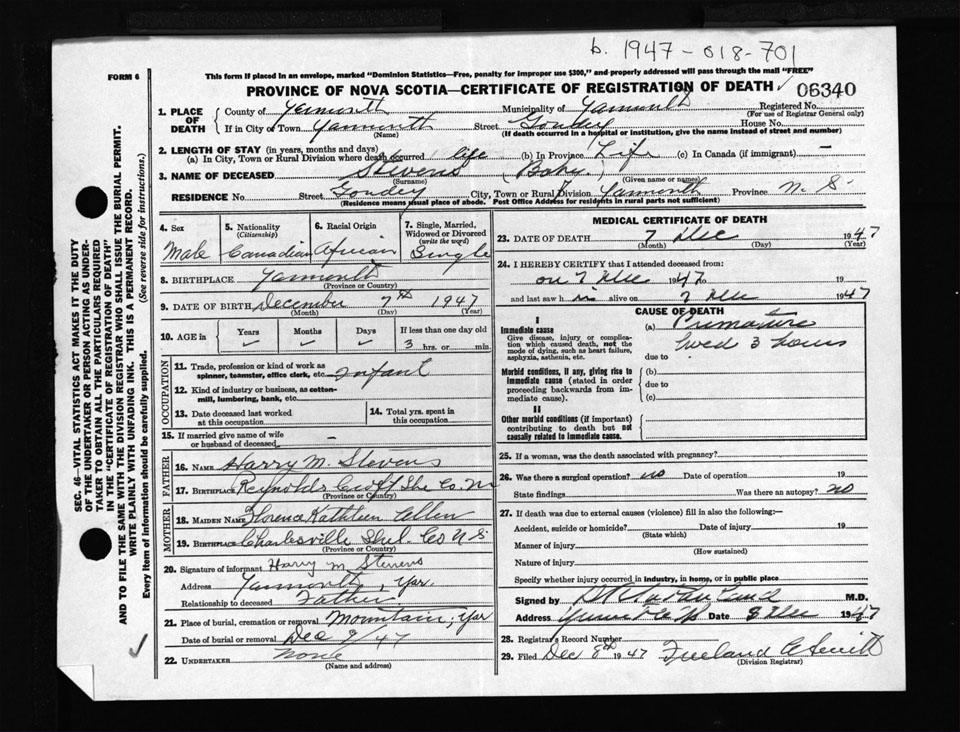 b. 1947-018-701
FORM 6
This form if placed in an envelope, marked "Dominion Statistics—Free, penalty for improper use $300," and properly addressed will pass through the mail "FREE"
PROVINCE OF NOVA SCOTIA—CERTIFICATE OF REGISTRATION OF DEATH
06340
1. PLACE OF DEATH
County of Yarmouth Municipality of Yarmouth Registered No.
(For use of Registrar General only)
If in City or Town Yarmouth Street Goudey House No.
(Name) (If death occurred in a hospital or institution, give the name instead of street and number)
2. LENGTH OF STAY (in years, months and days)
(a) In City, Town or Rural Division where death occurred life (b) In Province Life (c) In Canada (if immigrant) —
3. NAME OF DECEASED Stevens (Baby)
(Surname) (Given name or names)
RESIDENCE No. Street Goudey City, Town or Rural Division Yarmouth Province N. S.
(Residence means usual place of abode. Post Office Address for residents in rural parts not sufficient)
4. Sex Male
5. Nationality (Citizenship) Canadian
6. Racial Origin African
7. Single, Married, Widowed or Divorced (write the word) Single
8. BIRTHPLACE Yarmouth
(Province or Country)
9. DATE OF BIRTH December 7th 1947
(Month) (Day) (Year)
10. AGE in Years Months Days If less than one day old
3 hrs. or min.
OCCUPATION
11. Trade, profession or kind of work as spinner, teamster, office clerk, etc. Infant
12. Kind of industry or business, as cotton-mill, lumbering, bank, etc.
13. Date deceased last worked at this occupation
14. Total yrs. spent in this occupation
15. If married give name of wife or husband of deceased –
FATHER
16. NAME Harry M. Stevens
17. BIRTHPLACE Reynolds Croft She. Co.
(Province or Country)
MOTHER
18. MAIDEN NAME Florence Kathleen Allen
19. BIRTHPLACE Charlesville Shel. Co N S.
(Province or Country)
20. Signature of informant Harry M Stevens
Address Yarmouth, Yar.
Relationship to deceased Father
21. Place of burial, cremation or removal Mountain, Yar
Date of burial or removal Dec 9/47
22. UNDERTAKER None
(Name and address)
MEDICAL CERTIFICATE OF DEATH
23. DATE OF DEATH 7 Dec 1947
(Month) (Day) (Year)
24. I HEREBY CERTIFY that I attended deceased from:
on 7 Dec 1947 to 19
and last saw h im alive on 7 Dec 1947
CAUSE OF DEATH
I
Immediate cause
Give disease, injury or complication which caused death, not the mode of dying, such as heart failure, asphyxia, asthenia, etc.
(a) Premature
lived 3 hours
due to
Morbid conditions, if any, giving rise to immediate cause (stated in order proceeding backwards from immediate cause).
(b)
due to
(c)
II
Other morbid conditions (if important) contributing to death but not causally related to immediate cause.
25. If a woman, was the death associated with pregnancy?
26. Was there a surgical operation? no Date of operation 19
State findings Was there an autopsy? no
27. If death was due to external causes (violence) fill in also the following:—
Accident, suicide or homicide? Date of injury 19
(State which)
Manner of injury
(How sustained)
Nature of injury
Specify whether injury occurred in industry, in home, or in public place
Signed by M.D.
Address Date 8 Dec 1947
28. Registrar's Record Number
29. Filed Dec 8th 1947 Freeland
(Division Registrar)
SEC. 46—VITAL STATISTICS ACT MAKES IT THE DUTY
OF THE UNDERTAKER OR PERSON ACTING AS UNDER-
TAKER TO OBTAIN ALL THE PARTICULARS REQUIRED
IN THE "CERTIFICATE OF REGISTRATION OF DEATH"
AND TO FILE THE SAME WITH THE DIVISION REGISTRAR WHO SHALL ISSUE THE BURIAL PERMIT.
WRITE PLAINLY WITH UNFADING INK. THIS IS A PERMANENT RECORD.
Every item of information should be carefully supplied. (See reverse side for instructions.)